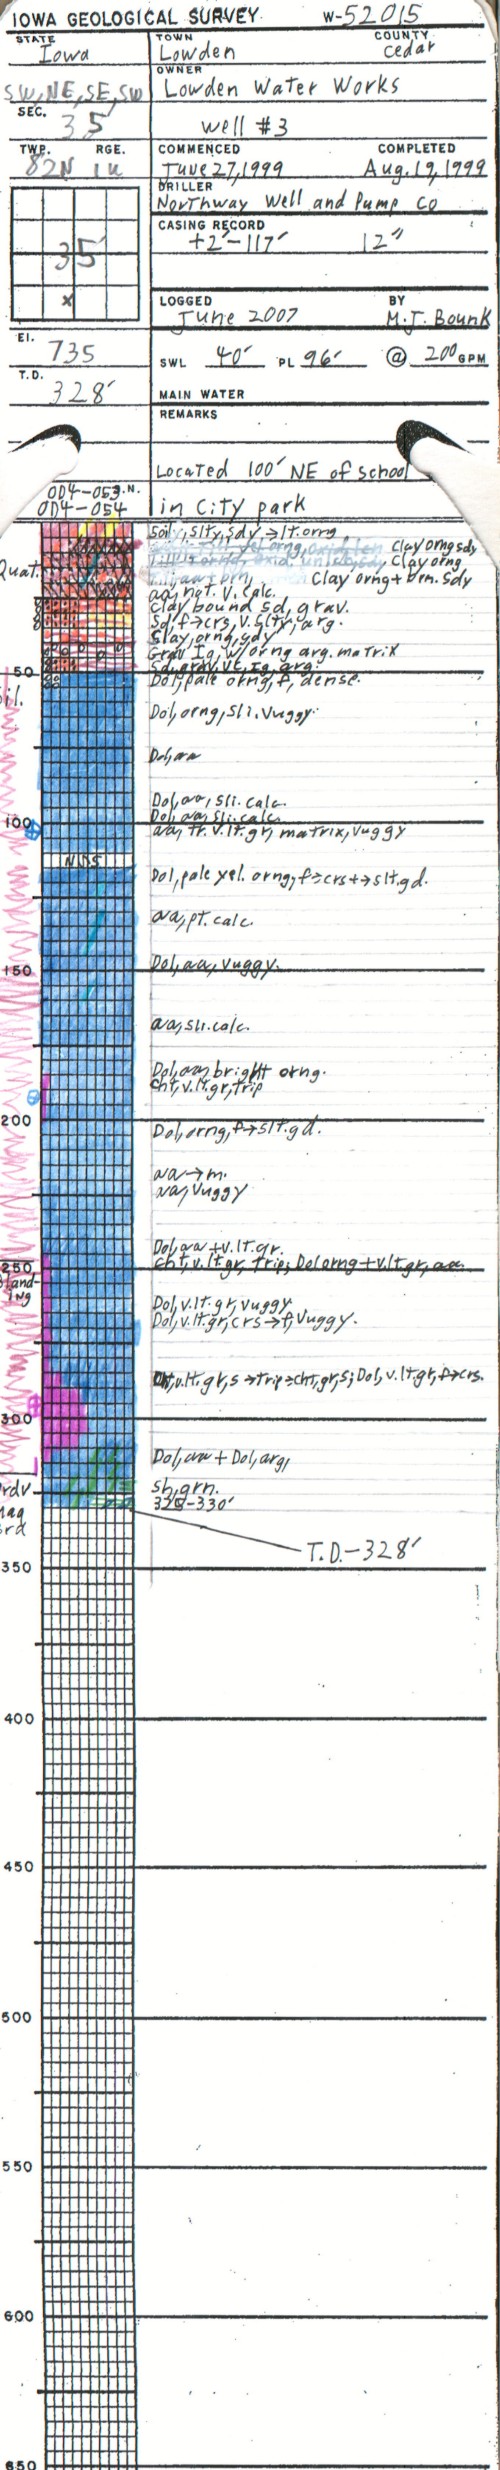 IOWA GEOLOGICAL SURVEY W-52015
STATE TOWN COUNTY
Iowa Lowden Cedar
OWNER
SW,NE,SE,SW Lowden Water Works
SEC.
35 well #3
TWP. RGE. COMMENCED COMPLETED
82N 1W June 27,1999 Aug.19,1999
DRILLER
Northway Well and Pump Co
CASING RECORD
+2'-117' 12"
35
x
LOGGED BY
June 2007 M.J. Bounk
El.
735 SWL 40' PL 96' @ 200 GPM
T.D.
328' MAIN WATER
REMARKS
Located 100' NE of school
OD4-053.N.
OD4-054 in City park
Soil, slty, sdy → lt. orng
Clay orng sdy
Clay orng
Quat. Clay orng + brn. sdy
aa, not v. calc.
Clay bound sd, grav.
Sd, f→crs, v. slty, arg.
Clay, orng, sdy
Grav Ig, w/orng arg. matrix
Sd, grav, vc, Ig, arg.
50 Dol, pale orng, f, dense.
Sil.
Dol, orng, sli. Vuggy.
Dol, aa
Dol, aa, sli. calc.
Dol, aa, sli. calc.
100 aa, tr. v. lt. gr, matrix, vuggy
NSS
Dol, pale yel. orng, f→crs+→slt.gd.
aa, pt. calc.
150 Dol, aa, vuggy.
aa, sli. calc.
Dol, aa, bright orng.
cht, v. lt. gr, trip
200 Dol, orng, f→slt.gd.
aa→m.
aa, Vuggy
Dol, aa + v. lt. gr.
250 cht, v. lt. gr, trip; Dol orng + v. lt. gr, aa.
Dol, v. lt. gr, vuggy
Dol, v. lt. gr, crs→f, Vuggy.
cht, v. lt. gr, s→trip=cht, gr, s; Dol, v. lt. gr, f→crs.
300
Dol, aa + Dol, arg,
sh, grn.
325-330'
T.D.-328'
350
400
450
500
550
600
650